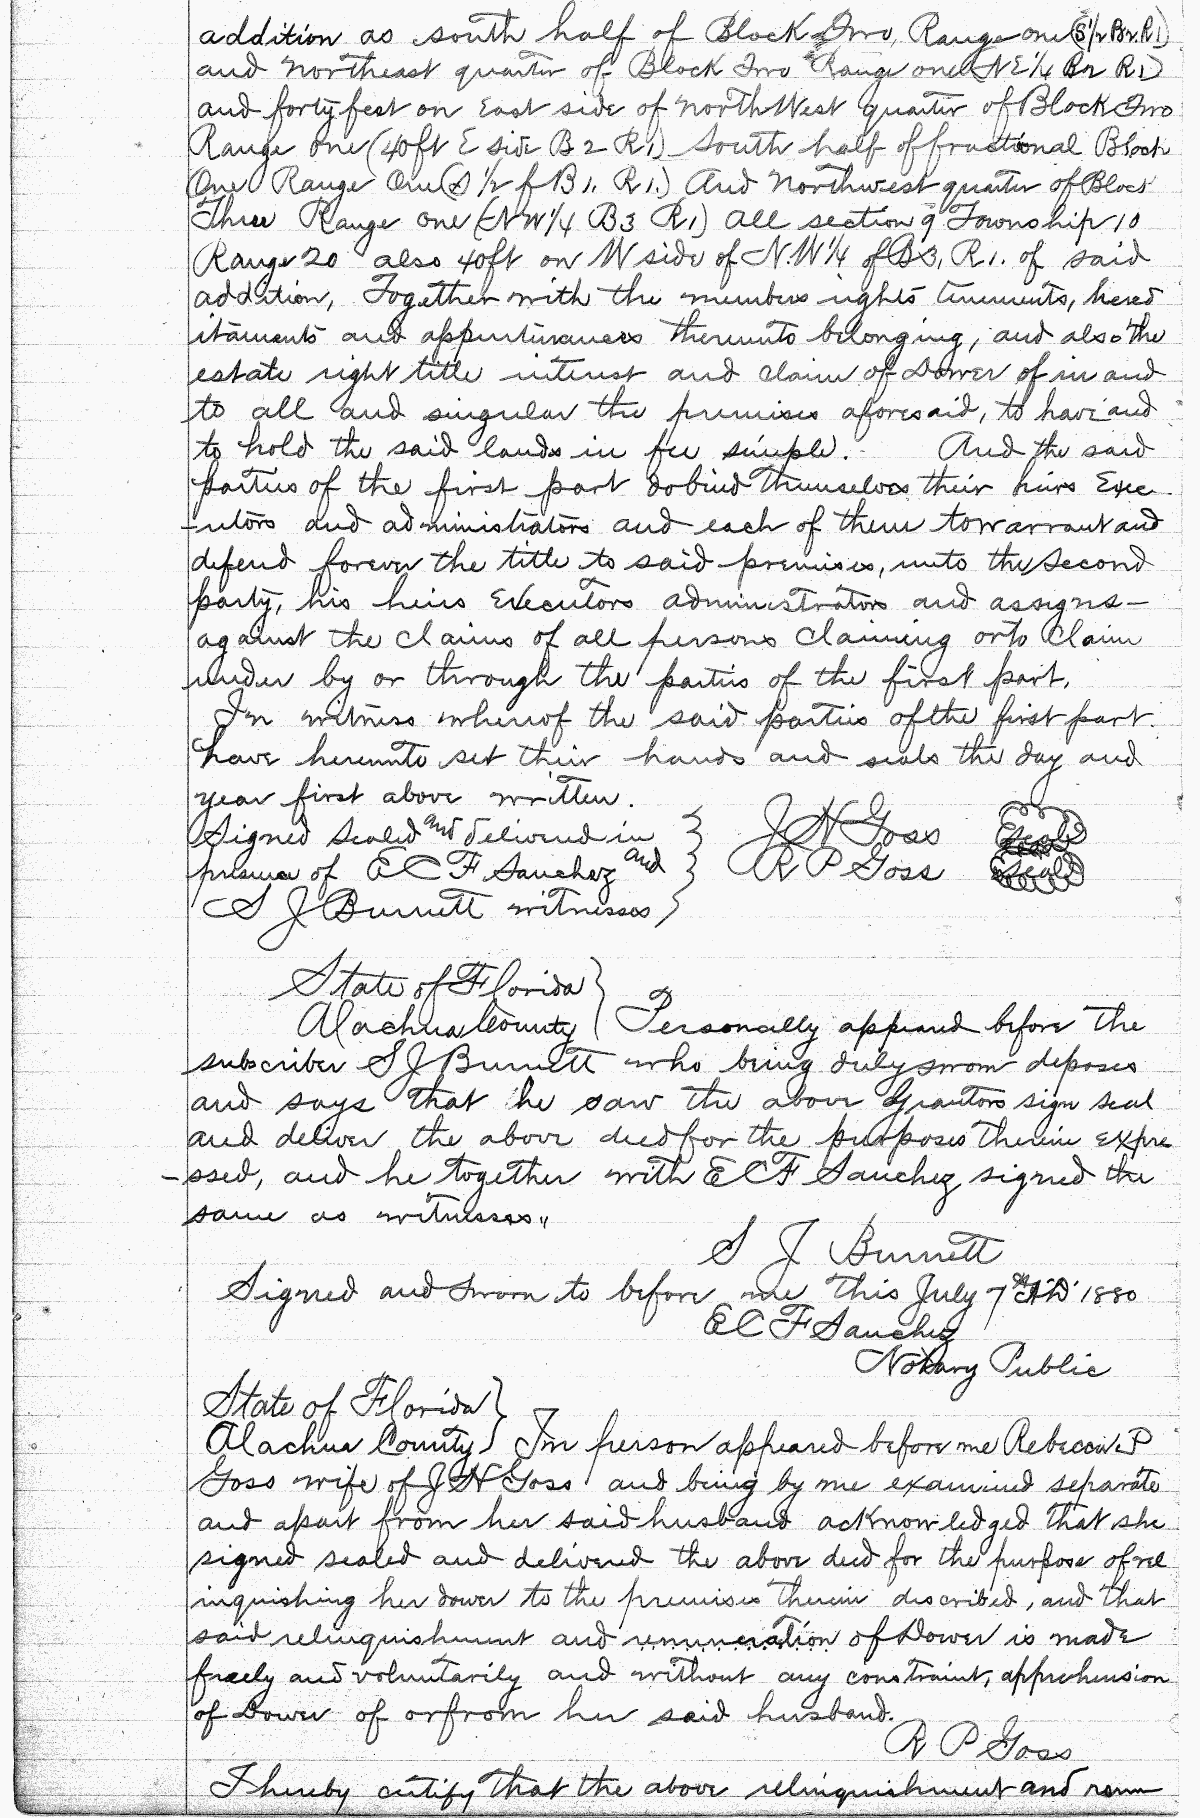 addition as south half of Block Two, Range one (S1/2 B2 R1)
and northeast quarter of Block Two Range one (NE1/4 B2 R1)
and forty feet on East side of northWest quarter of Block Two
Range one (40ft E side B2 R1) South half of fractional Block
One Range One (S 1/2 f B1. R1.) And northwest quarter of Block
Three Range one (NW1/4 B3 R1) all section 9 Township 10
Range 20 also 40ft on W side of N.W1/4 of B3, R1. of said
addition, Together with the members rights tenements, hered
itaments and appurtenances thereunto belonging, and also the
estate right title interest and claim of Dower of in and
to all and singular the premises aforesaid, to have and
to hold the said lands in fee simple. And the said
parties of the first part do bind themselves their heirs Exec
-utors and administrators and each of them to warrant and
defend forever the title to said premises, unto the second
party, his heirs Executors administrators and assigns—
against the claims of all persons claiming or to claim
under by or through the parties of the first part.
In witness whereof the said parties of the first part
have hereunto set their hands and seals the day and
year first above written.
Signed Sealed and delivered in } J N Goss Seal
presence of E C F Sanchez and } R P Goss Seal
S J Burnett witnesses }
State of Florida }
Alachua County } Personally appeared before the
subscriber S J Burnett who being duly sworn deposes
and says that he saw the above Grantors sign seal
and deliver the above deed for the purposes therein expre
-ssed, and he together with E C F Sanchez signed the
same as witnesses"
S J Burnett
Signed and sworn to before me this July 7th AD 1880
E C F Sanchez
Notary Public
State of Florida }
Alachua County } In person appeared before me Rebecca P
Goss wife of J N Goss and being by me examined separate
and apart from her said husband acknowledged that she
signed sealed and delivered the above deed for the purpose of rel
inquishing her dower to the premises therein described, and that
said relinquishment and renunciation of Dower is made
freely and voluntarily and without any constraint, apprehension
of Dower of or from her said husband.
R P Goss
I hereby certify that the above relinquishment and renun